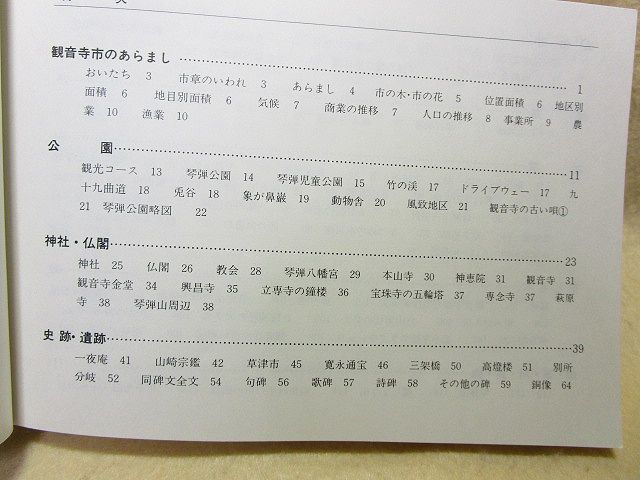 観音寺市のあらまし……………………………………1
おいたち 3 市章のいわれ 3 あらまし 4 市の木・市の花 5 位置面積 6 地区別
面積 6 地目別面積 6 気候 7 商業の推移 7 人口の推移 8 事業所 9 農
業 10 漁業 10
公 園……………………………………11
観光コース 13 琴弾公園 14 琴弾児童公園 15 竹の渓 17 ドライブウェー 17 九
十九曲道 18 兎谷 18 象が鼻巌 19 動物舎 20 風致地区 21 観音寺の古い唄①
21 琴弾公園略図 22
神社・仏閣……………………………………23
神社 25 仏閣 26 教会 28 琴弾八幡宮 29 本山寺 30 神恵院 31 観音寺 31
観音寺金堂 34 興昌寺 35 立専寺の鐘楼 36 宝珠寺の五輪塔 37 専念寺 37 萩原
寺 38 琴弾山周辺 38
史跡・遺跡……………………………………39
一夜庵 41 山崎宗鑑 42 草津市 45 寛永通宝 46 三架橋 50 高燈楼 51 別所
分岐 52 同碑文全文 54 句碑 56 歌碑 57 詩碑 58 その他の碑 59 銅像 64